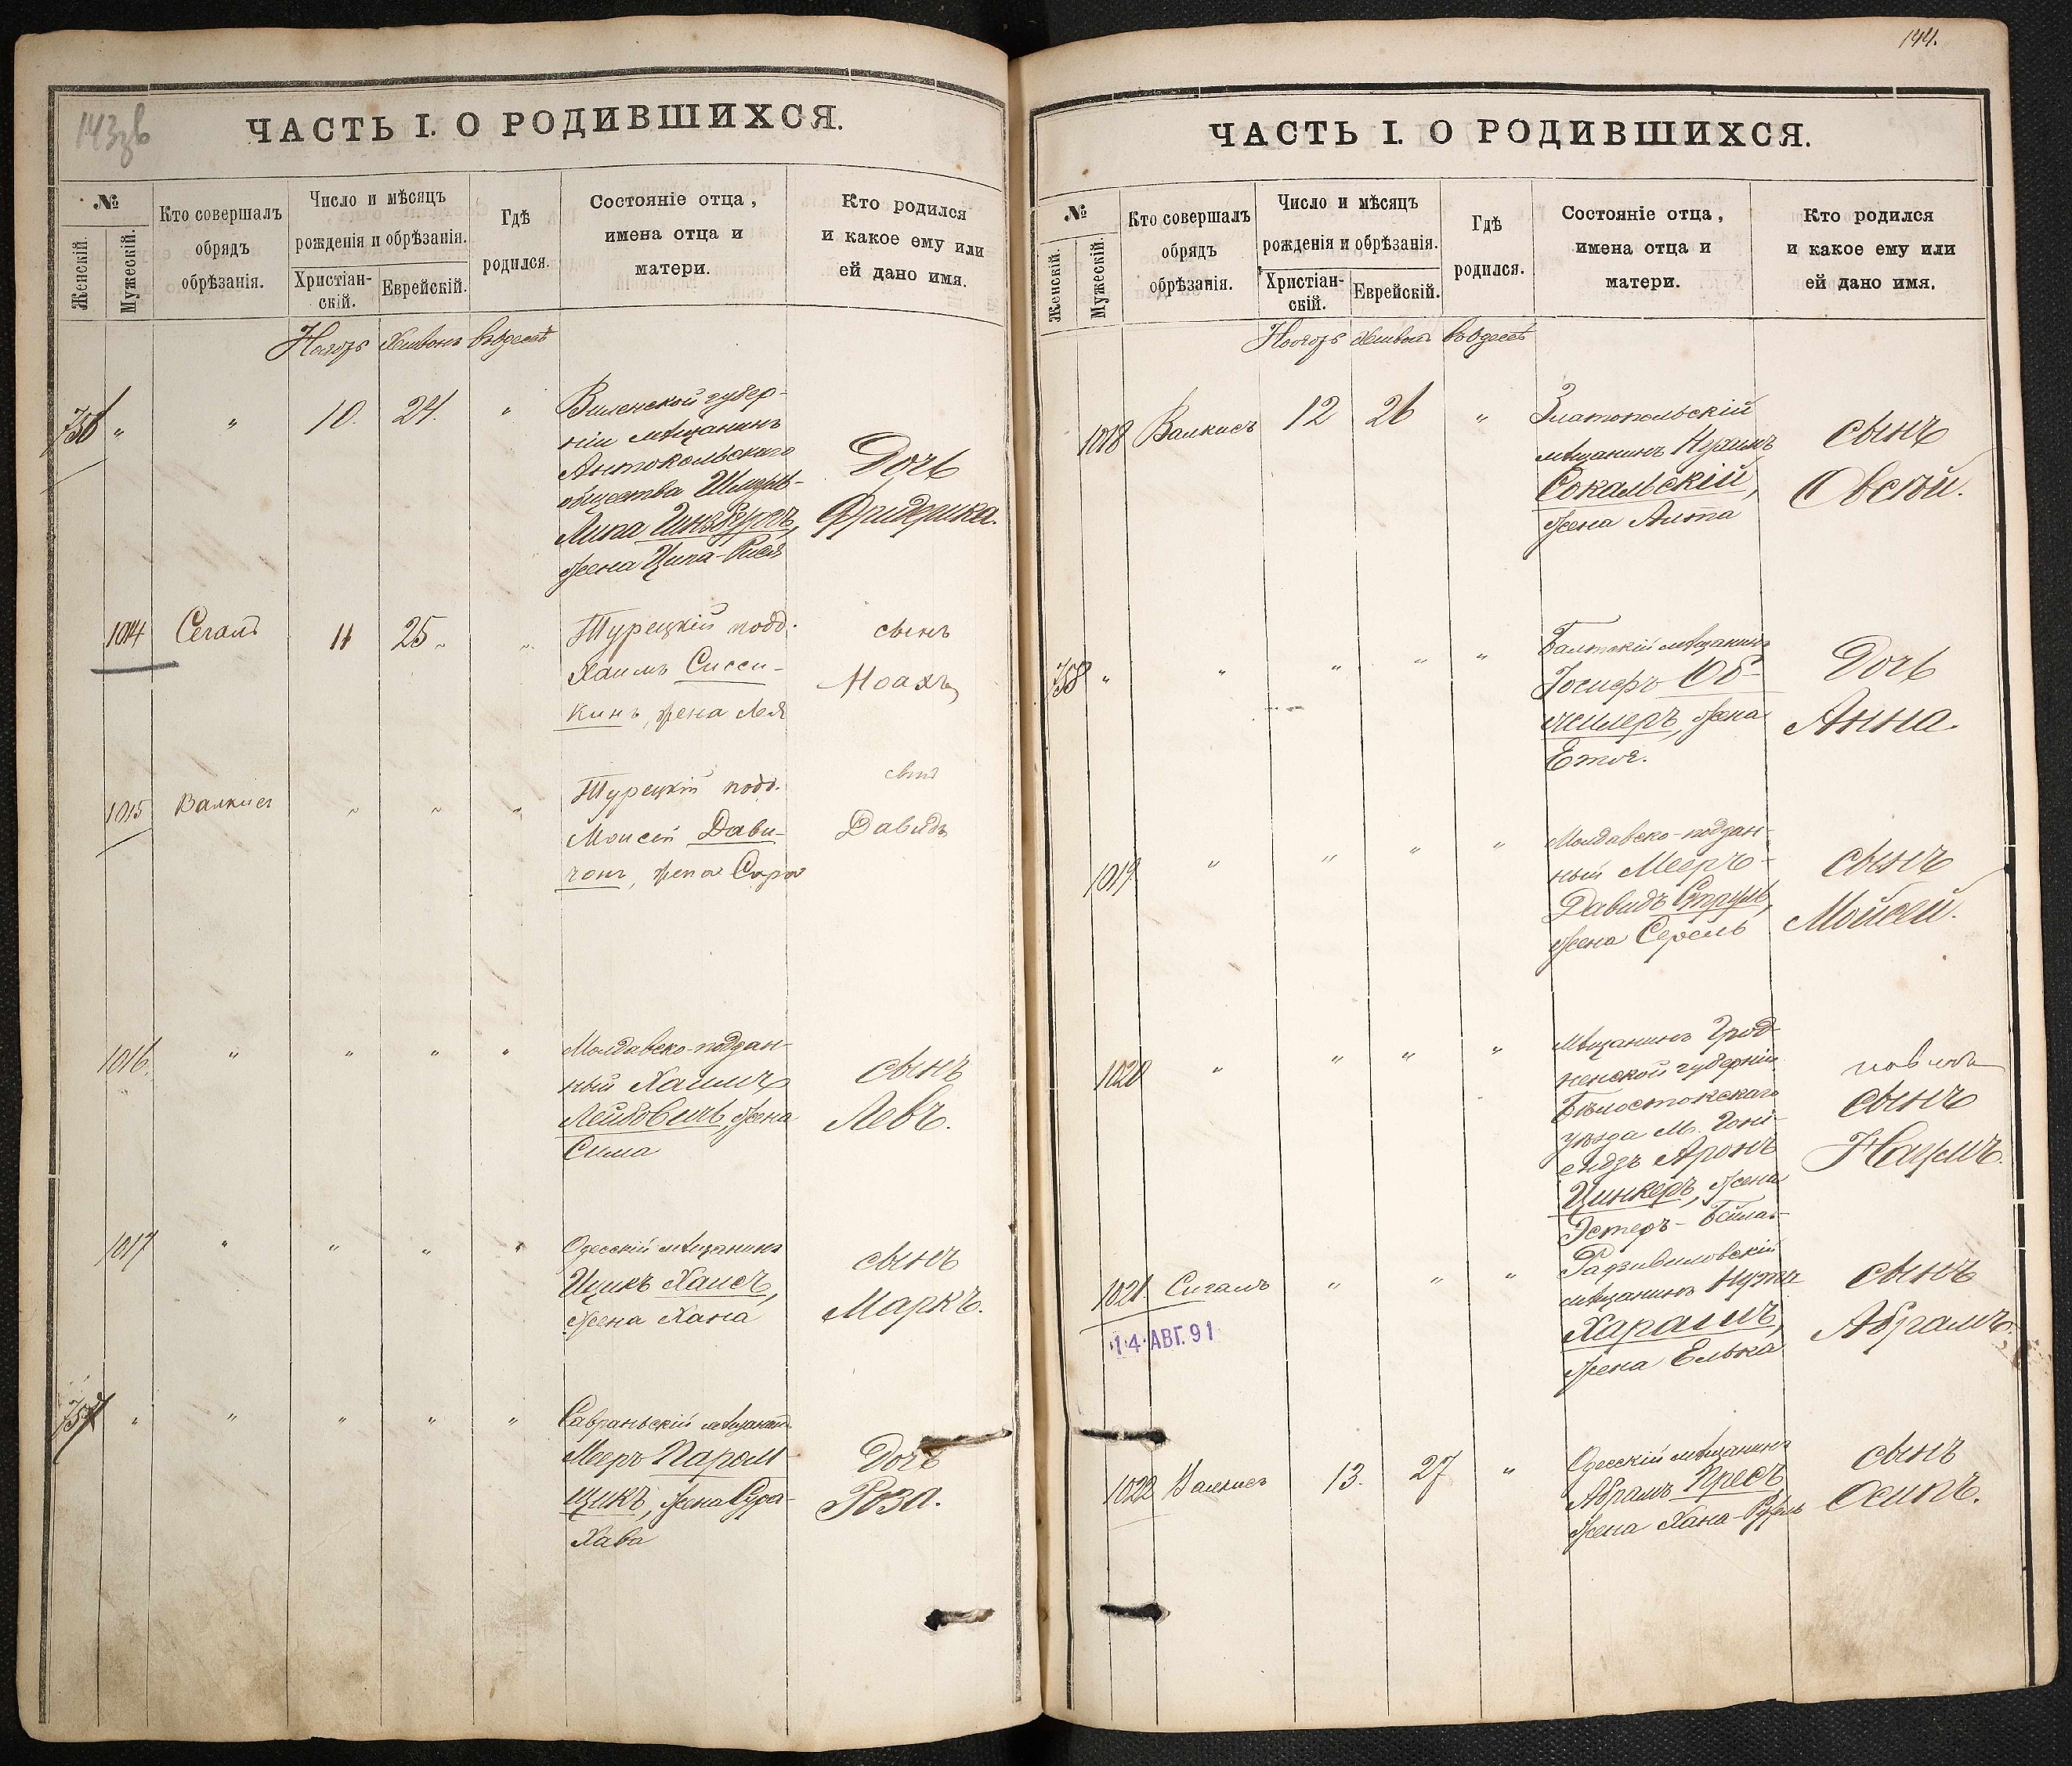 143зв
ЧАСТЬ I. О РОДИВШИХСЯ.
№
Женскій.
Мужескій.
Кто совершалъ
обрядъ
обрѣзанія.
Число и мѣсяцъ
рожденія и обрѣзанія.
Христіан-
скій.
Еврейскій.
Гдѣ
родился.
Состояніе отца,
имена отца и
матери.
Кто родился
и какое ему или
ей дано имя.
Ноябрь Хешвонъ въ Одессѣ
756 " " 10. 24. "
Виленской губер-
ніи мѣщанинъ
Антокольскаго
общества
Липа Гинзбергъ,
жена Ципа-
Дочь
Фридерика.
1014 Сегалъ 11 25 "
Турецкій подд.
Хаимъ Сисси-
кинъ, жена Лея
сынъ
Ноахъ
1015 Валкисъ " " "
Турецкій подд.
Моисей Дави-
чонъ, жена Сара
сынъ
Давидъ
1016 " " " "
Молдавско-поддан-
ный Хаимъ
Лейбовичъ, жена
Сима
сынъ
Левъ.
1017 " " " "
Одесскій мѣщанинъ
Ицикъ Хаисъ,
жена Хана
сынъ
Маркъ.
757 " " " " "
Савраньскій мѣщанинъ
Мееръ Паром-
щикъ, жена Сура-
Хава
Дочь
Роза.
144.
ЧАСТЬ I. О РОДИВШИХСЯ.
№
Женскій.
Мужескій.
Кто совершалъ
обрядъ
обрѣзанія.
Число и мѣсяцъ
рожденія и обрѣзанія.
Христіан-
скій.
Еврейскій.
Гдѣ
родился.
Состояніе отца,
имена отца и
матери.
Кто родился
и какое ему или
ей дано имя.
Ноябрь Хешвонъ въ Одессѣ
1018 Валкисъ 12 26 "
Златопольскій
мѣщанинъ
Сокальскій,
жена
сынъ
Овсѣй.
758 " " " " "
Балтскій мѣщанинъ
Іосифъ Об-
жена
Етя.
Дочь
Анна.
1019 " " " "
Молдавско-поддан-
ный Мееръ-
Давидъ
жена
сынъ
Мойсей.
1020 " " " "
мѣщанинъ Грод-
ненской губерніи
Бѣлостокскаго
уѣзда м. Гоні-
ендзъ Аронъ
Цинкеръ, жена
Эстеръ-Бейла-
сынъ
Наумъ.
1021 Сигалъ " " "
14 АВГ. 91
Радзивиловскій
мѣщанинъ
жена Елька
сынъ
Абрамъ.
1022 Валкисъ 13. 27 "
Одесскій мѣщанинъ
Абрамъ Пресъ
жена Хана-
сынъ
Осипъ.